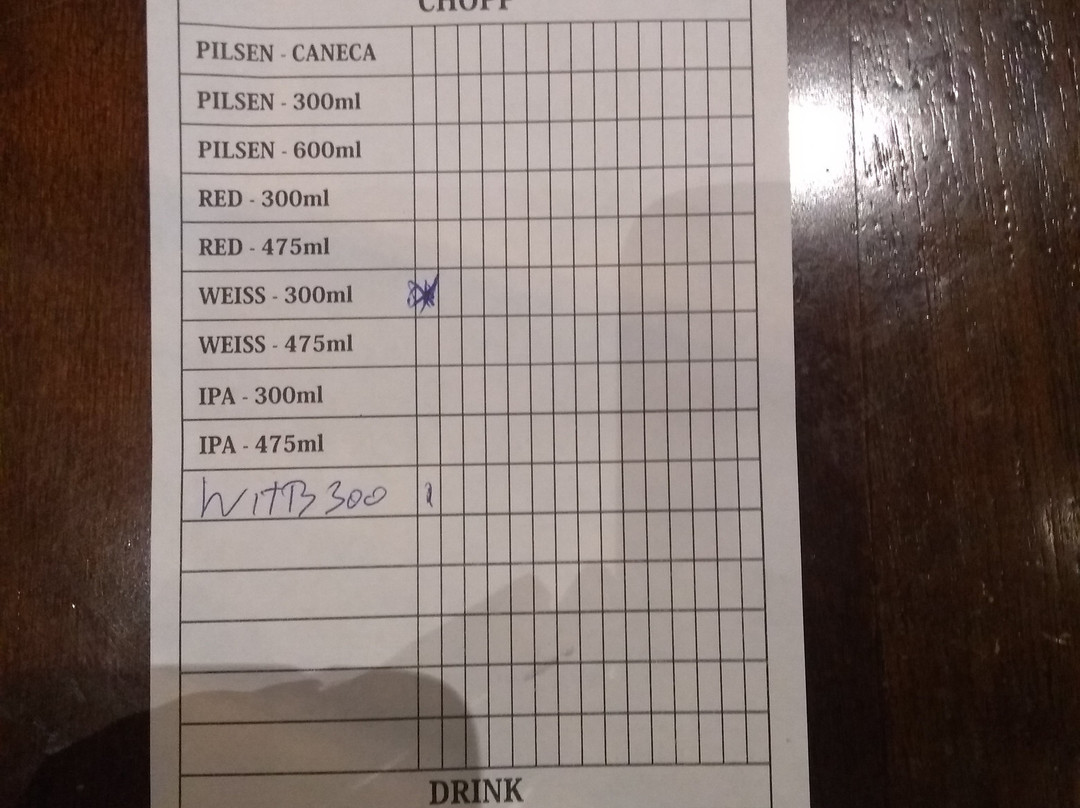 CHOPP
PILSEN - CANECA
PILSEN - 300ml
PILSEN - 600ml
RED - 300ml
RED - 475ml
WEISS - 300ml
WEISS - 475ml
IPA - 300ml
IPA - 475ml
WITB 300 1
DRINK